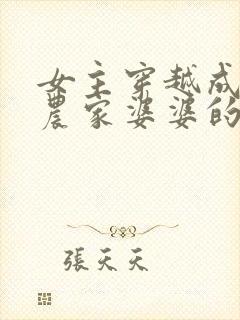 女主穿越成
農家婆婆的
張天天